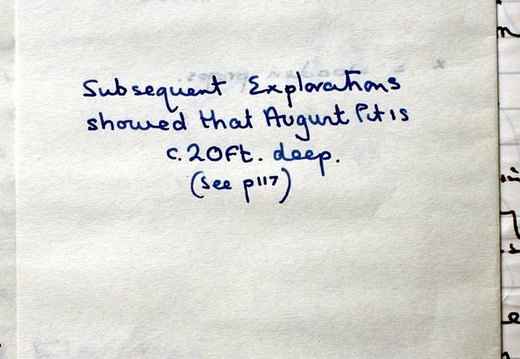 Subsequent Explorations
showed that August Pit is
c.20ft. deep.
(see p117)